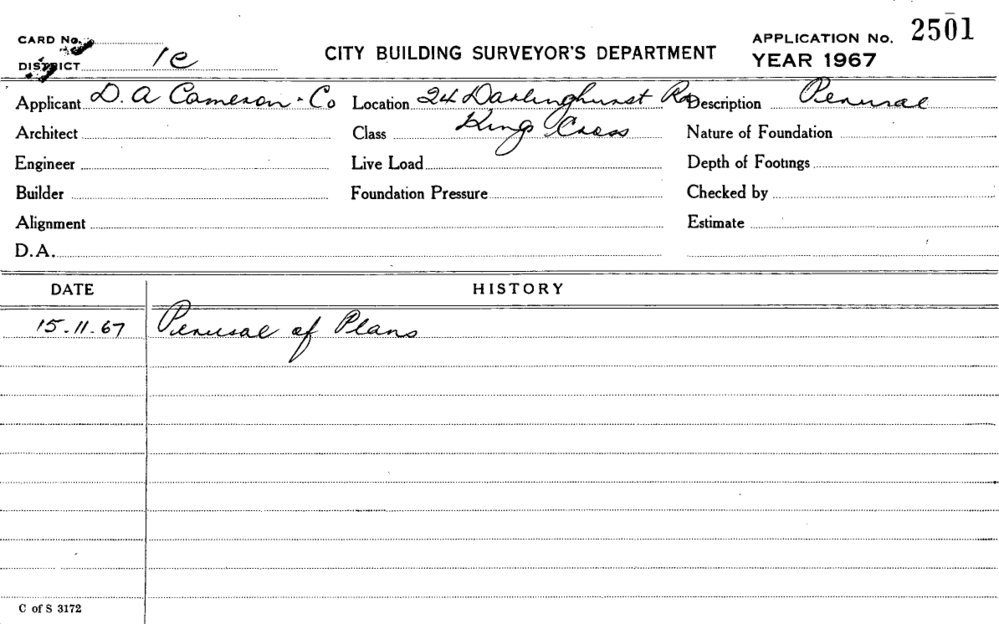 CARD No.
DISTRICT 1C
CITY BUILDING SURVEYOR'S DEPARTMENT
APPLICATION No. 2501
YEAR 1967
Applicant D. A Cameron - Co Location 24 Darlinghurst Rd Description Perusal
Architect Class Kings Cross Nature of Foundation
Engineer Live Load Depth of Footings
Builder Foundation Pressure Checked by
Alignment Estimate
D.A.
DATE HISTORY
15.11.67 Perusal of Plans
C of S 3172